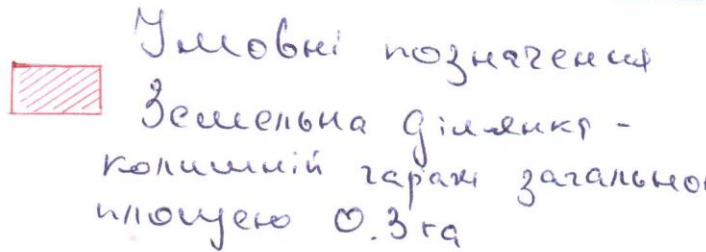 Умовні позначення
Земельна ділянка -
колишній гараж загальною
площею 0.3 га